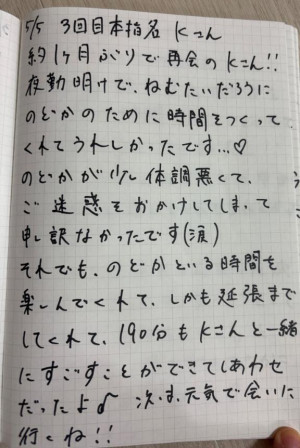 5/5 3回目本指名 Kさん
約1ヶ月ぶりで再会のKさん!!
夜勤明けで、ねむたいだろうに
のどかのために時間をつくって
くれてうれしかったです…♡
のどかが少し体調悪くて、
ご迷惑をおかけしてしまって
申し訳なかったです(涙)
それでも、のどかといる時間を
楽しんでくれて、しかも延張まで
してくれて、190分もKさんと一緒
にすごすことができてしあわせ
だったよ♪ 次は、元気で会いに
行くね!!